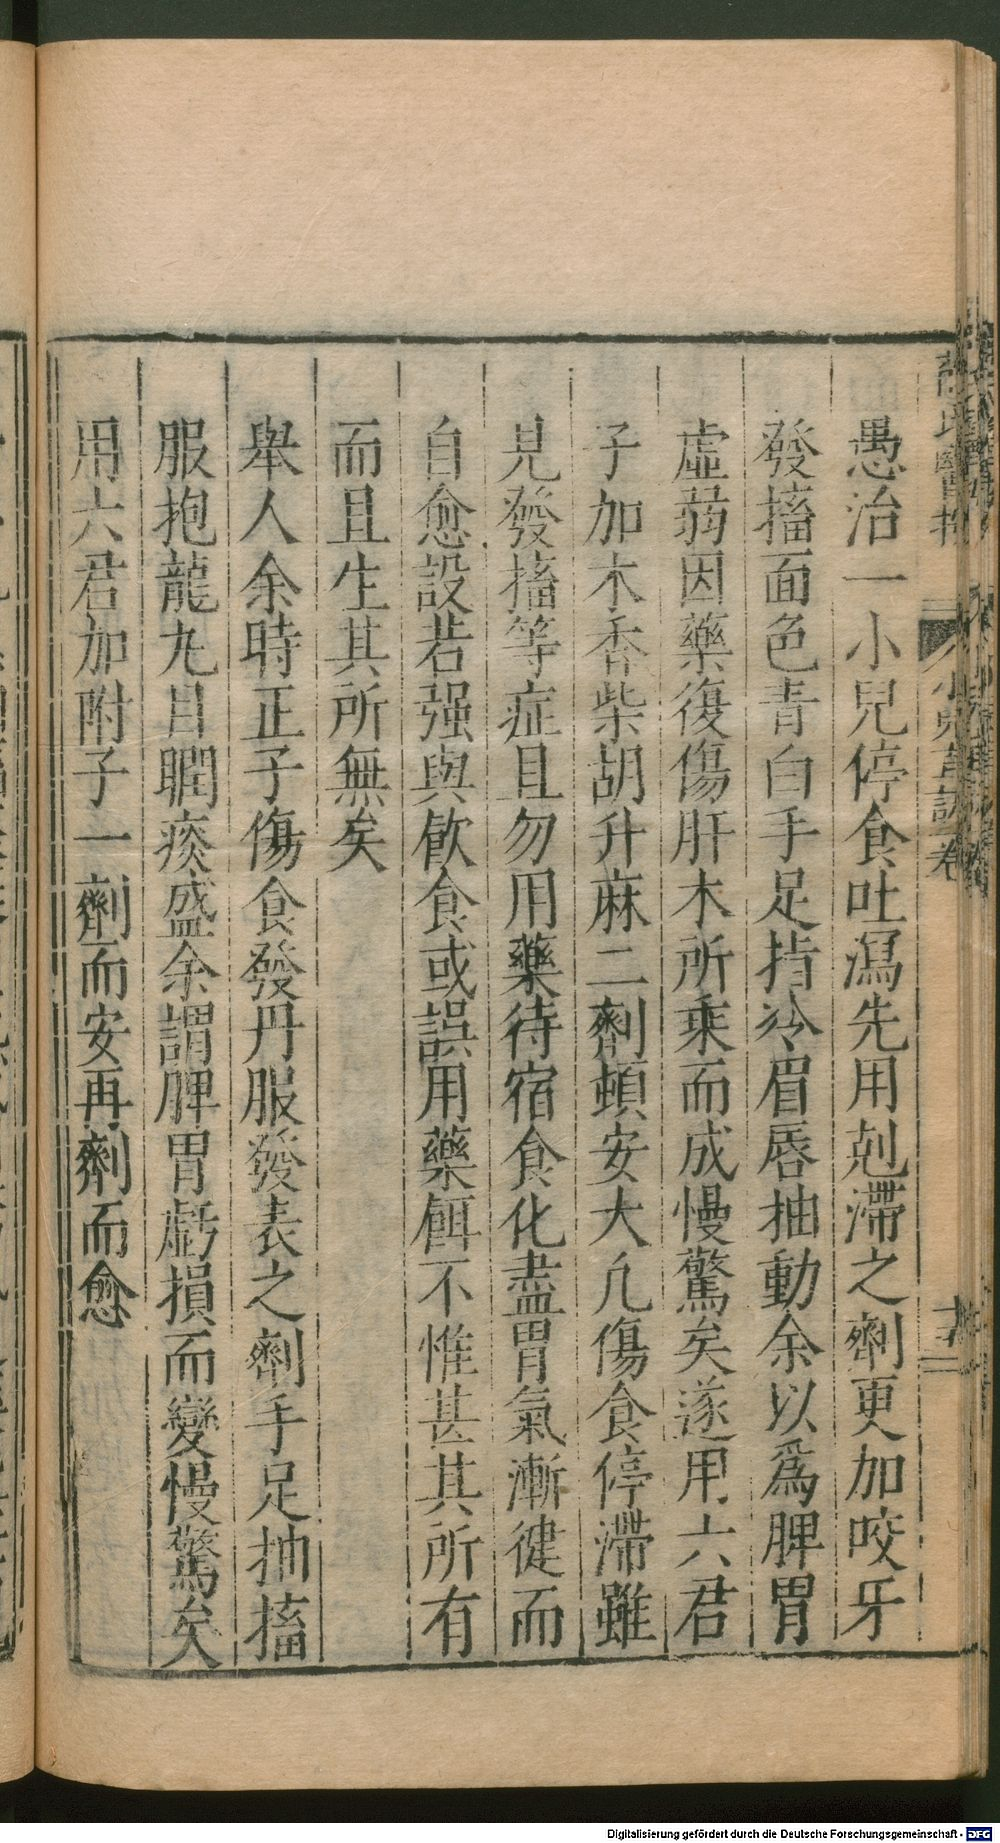 愚治一小兒停食吐瀉先用剋滯之劑更加咬牙
發搐面色青白手足指冷眉唇抽動余以爲脾胃
虛弱因藥復傷肝木所乘而成慢驚矣遂用六君
子加木香柴胡升麻二劑頓安大凡傷食停滯雖
見發搐等症且勿用藥待宿食化盡胃氣漸健而
自愈設若强與飮食或誤用藥餌不惟甚其所有
而且生其所無矣
舉人余時正子傷食發丹服發表之劑手足抽搐
服抱龍丸目瞤痰盛余謂脾胃虧損而變慢驚矣
用六君加附子一劑而安再劑而愈
Digitalisierung gefördert durch die Deutsche Forschungsgemeinschaft - DFG